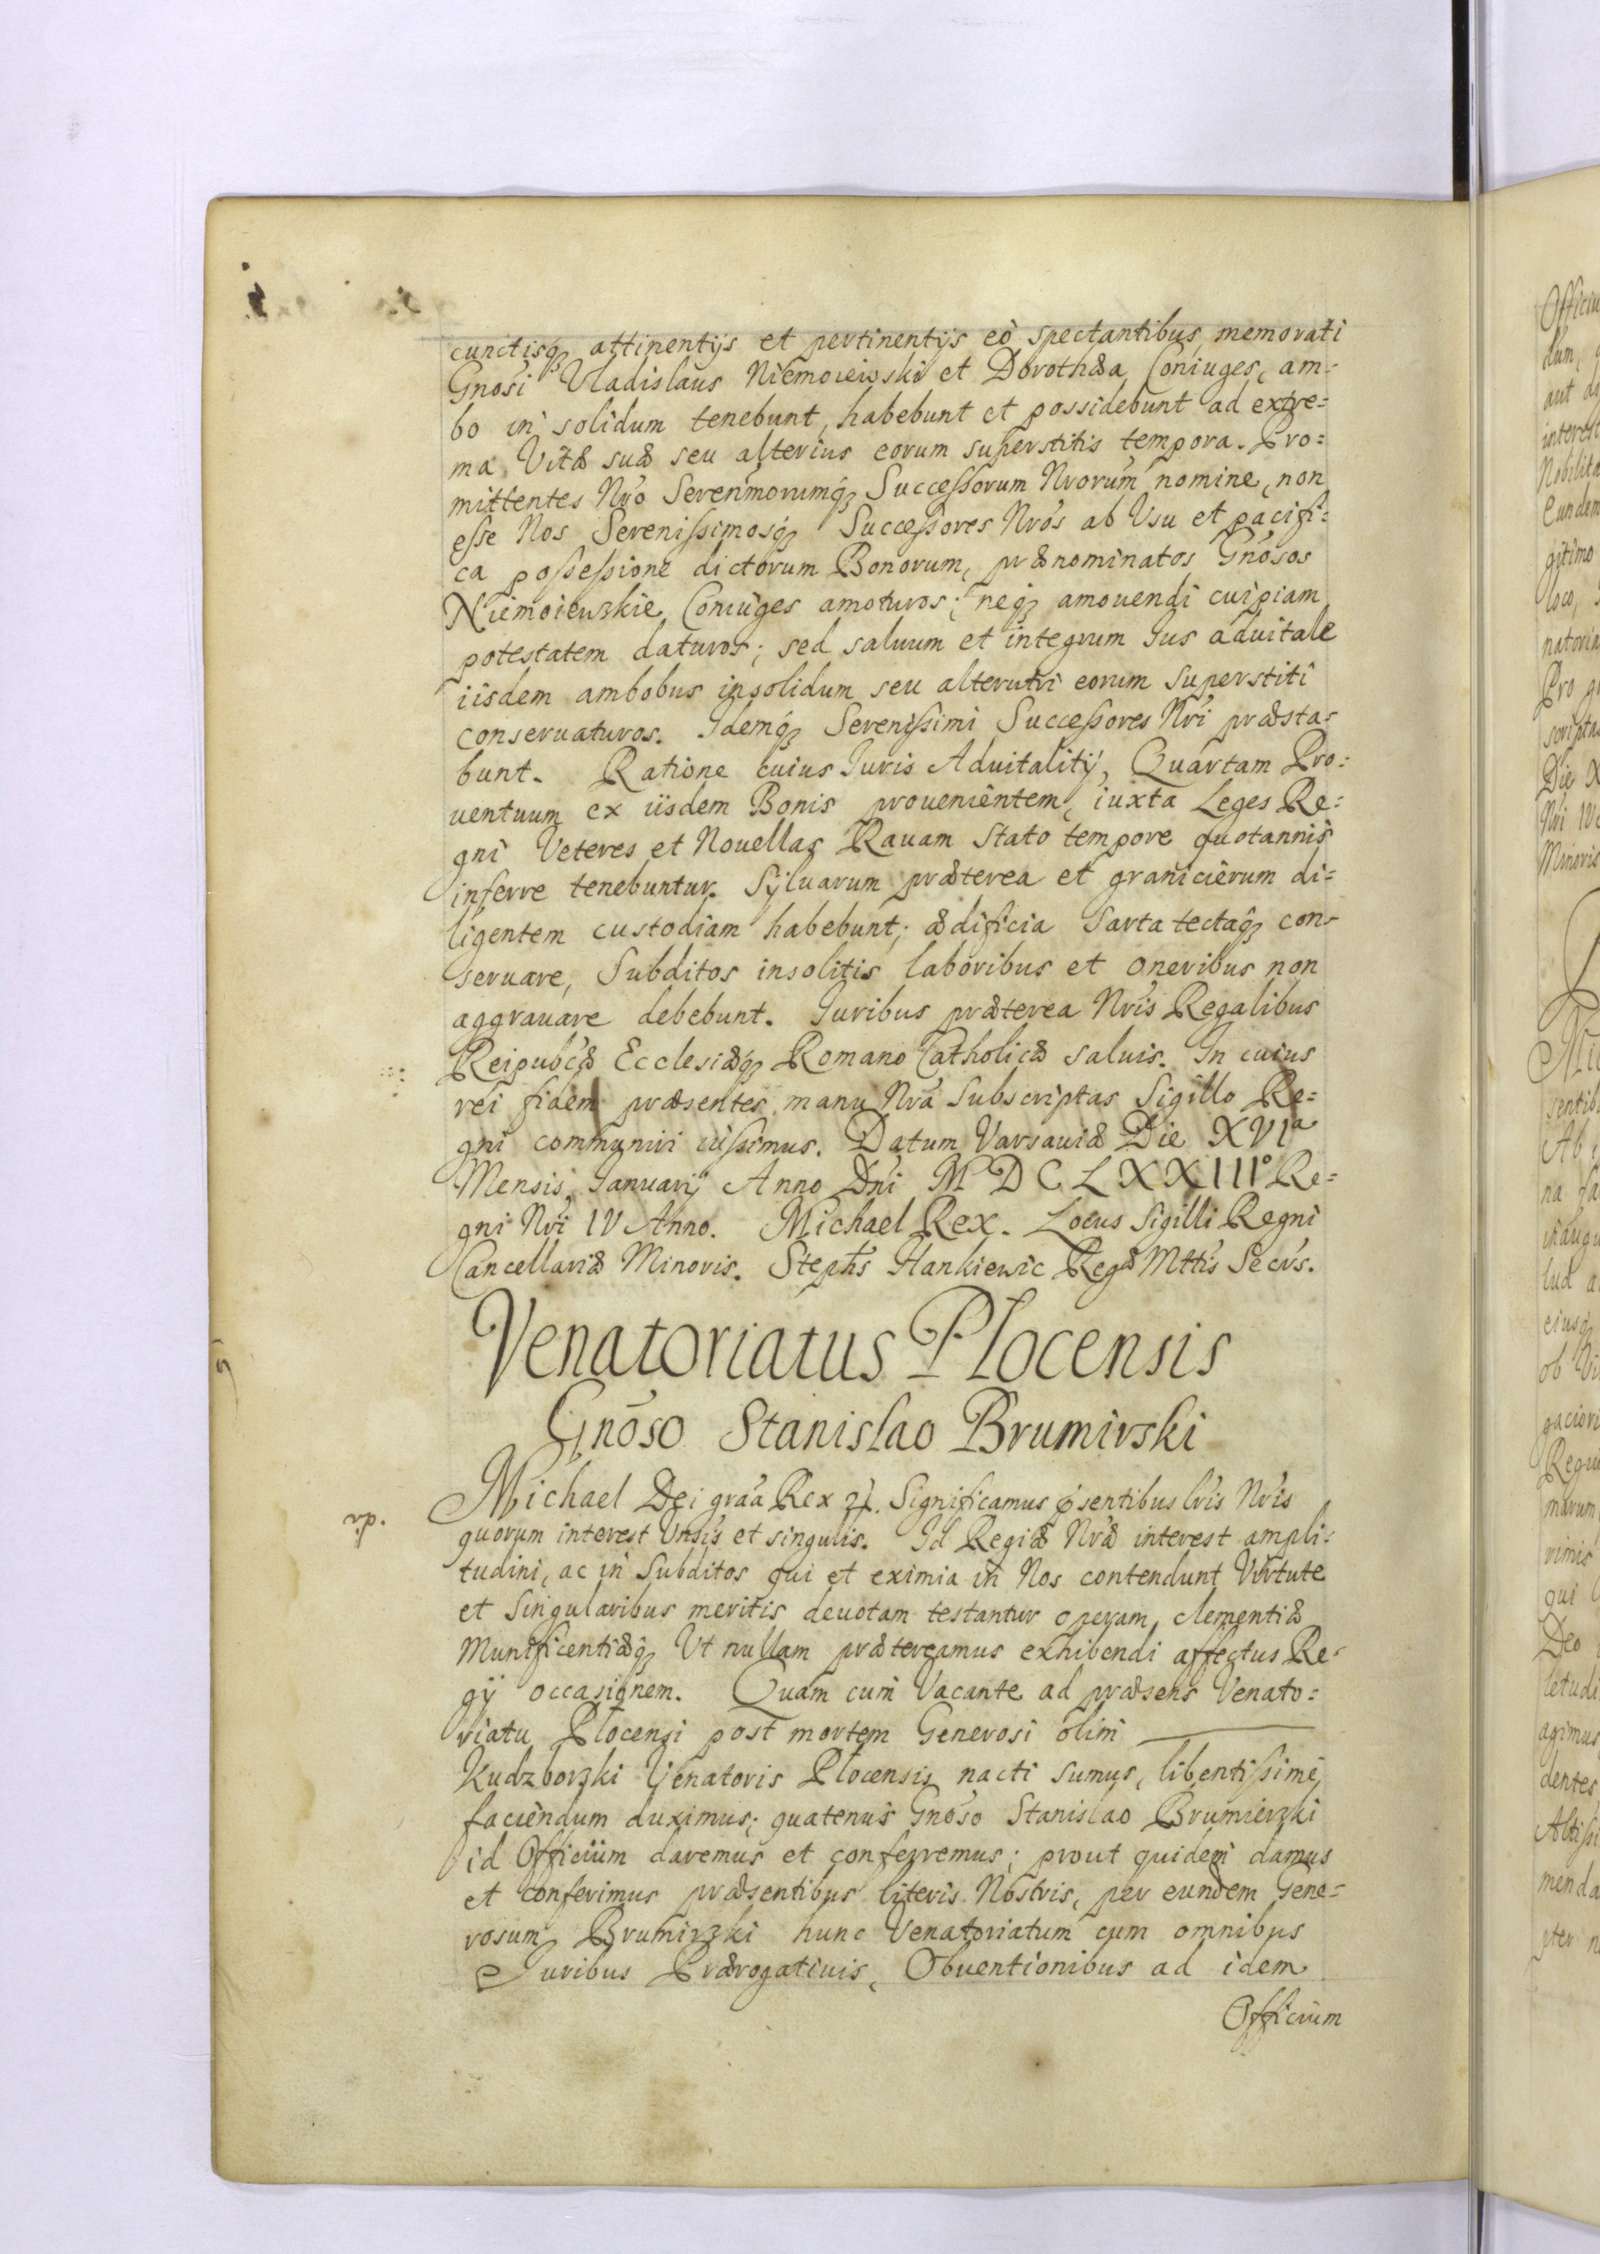 cunctisq₃ attinentijs et pertinentijs eò spectantibus memorati
Gnosi Vladislaus Niemoiewski et Dorothæa Coniuges, am-
bo in solidum tenebunt, habebunt et possidebunt ad extre=
ma Vitæ suæ seu alterius eorum superstitis tempora. Pro=
mittentes Nro Serenmorumq₃ Successorum Nrorum nomine, non
esse Nos Serenissimosq₃ Successores Nros ab Usu et pacifi=
ca possessione dictorum Bonorum, prænominatos Gnosos
Niemoiewzkie Coniuges amoturos; neq₃ amouendi cuipiam
potestatem daturos; sed saluum et integrum Ius aduitale
iisdem ambobus insolidum seu alterutri eorum Superstiti
conseruaturos. Idemq₃ Serenissimi Successores Nri præsta=
bunt. Ratione cuius Iuris Aduitalitij, Quartam Pro=
uentuum ex iisdem Bonis prouenientem, iuxta Leges Re=
gni Veteres et Nouellas Rauam stato tempore quotannis
inferre tenebuntur. Syluarum præterea et granicierum di=
ligentem custodiam habebunt; ædificia sarta tectaq₃ con=
seruare, Subditos insolitis laboribus et oneribus non
aggrauare debebunt. Iuribus præterea Nris Regalibus
Reipubcæ Ecclesiæq₃ Romano Catholicæ saluis. In cuius
rei fidem præsentes manu Nra Subscriptas Sigillo Re=
gni communiri iussimus. Datum Varsauiæ Die XVIa
Mensis Ianuarij Anno Dni MDCLXXIIIo Re=
gni Nri IV Anno. Michael Rex. Locus Sigilli Regni
Cancellariæ Minoris. Stephs Hankiewic Regæ Mttis Secrs.
Venatoriatus Plocensis
Gnoso Stanislao Brumirski
Michael Dei graa Rex Significamus psentibus lris Nris
rp.
quorum interest Unsis et singulis. Id Regiæ Nræ interest ampli=
tudini, ac in Subditos qui et eximia in Nos contendunt Virtute
et Singularibus meritis deuotam testantur operam, clementiæ
Munificentiæq₃ Ut nullam prætereamus exhibendi affectus Re=
gij occasionem. Quam cum Vacante ad præsens Venato=
riatu Plocensi post mortem Generosi olim
Kudzborzki Venatoris Plocensis nacti sumus, libentissime
faciendum duximus; quatenus Gnoso Stanislao Brumierzki
id Officium daremus et conferremus; prout quidem damus
et conferimus præsentibus literis Nostris, per eundem Gene=
rosum Brumirzki hunc Venatoriatum cum omnibus
Iuribus Prærogatiuis, Obuentionibus ad idem
Officium